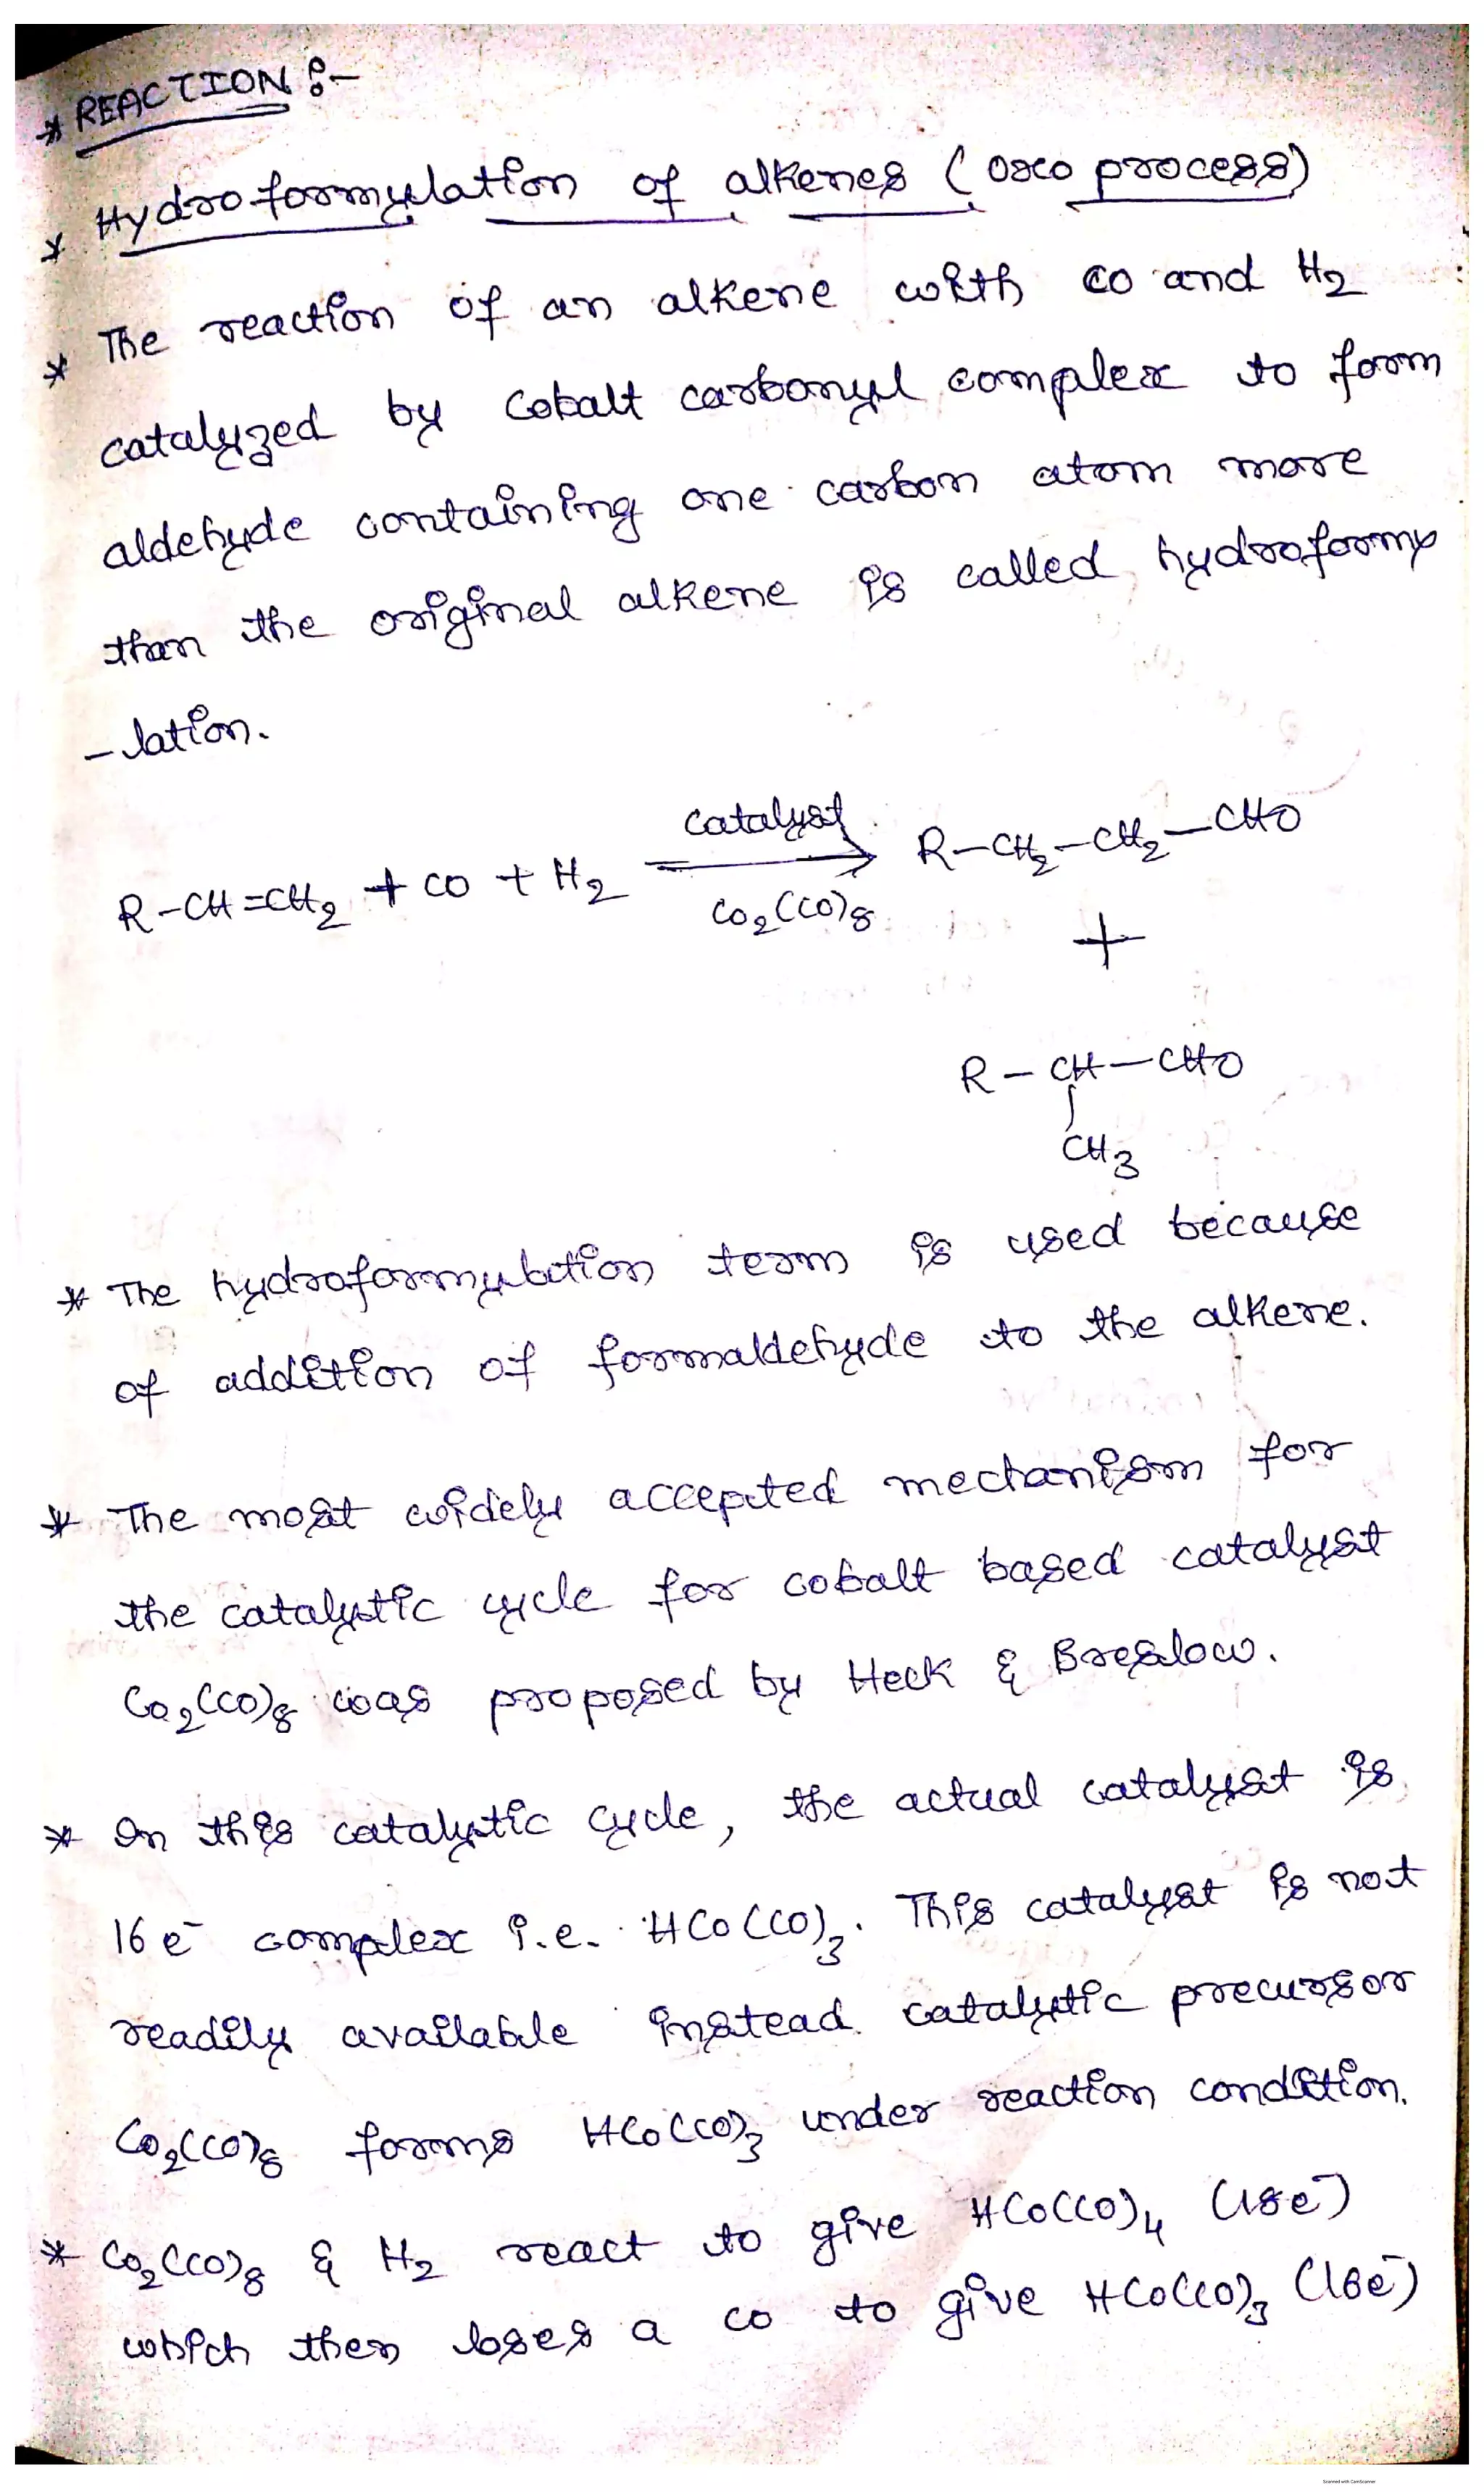 * REACTION :-
* Hydroformylation of alkenes (oxo process)
* The reaction of an alkene with CO and H2
catalyzed by Cobalt carbonyl complex to form
aldehyde containing one carbon atom more
than the original alkene is called hydroformy
- lation.
R-CH=CH2 + CO + H2 catalyst Co2(CO)8 → R-CH2-CH2-CHO
+
R-CH-CHO
CH3
* The hydroformylation term is used because
of addition of formaldehyde to the alkene.
* The most widely accepted mechanism for
the catalytic cycle for cobalt based catalyst
Co2(CO)8 was proposed by Heck & Breslow.
* In this catalytic cycle, the actual catalyst is
16 e- complex i.e. HCo(CO)3. This catalyst is not
readily available instead catalytic precursor
Co2(CO)8 forms HCo(CO)3 under reaction condition.
* Co2(CO)8 & H2 react to give HCo(CO)4 (18e-)
which then loses a CO to give HCo(CO)3 (16e-)
Scanned with CamScanner